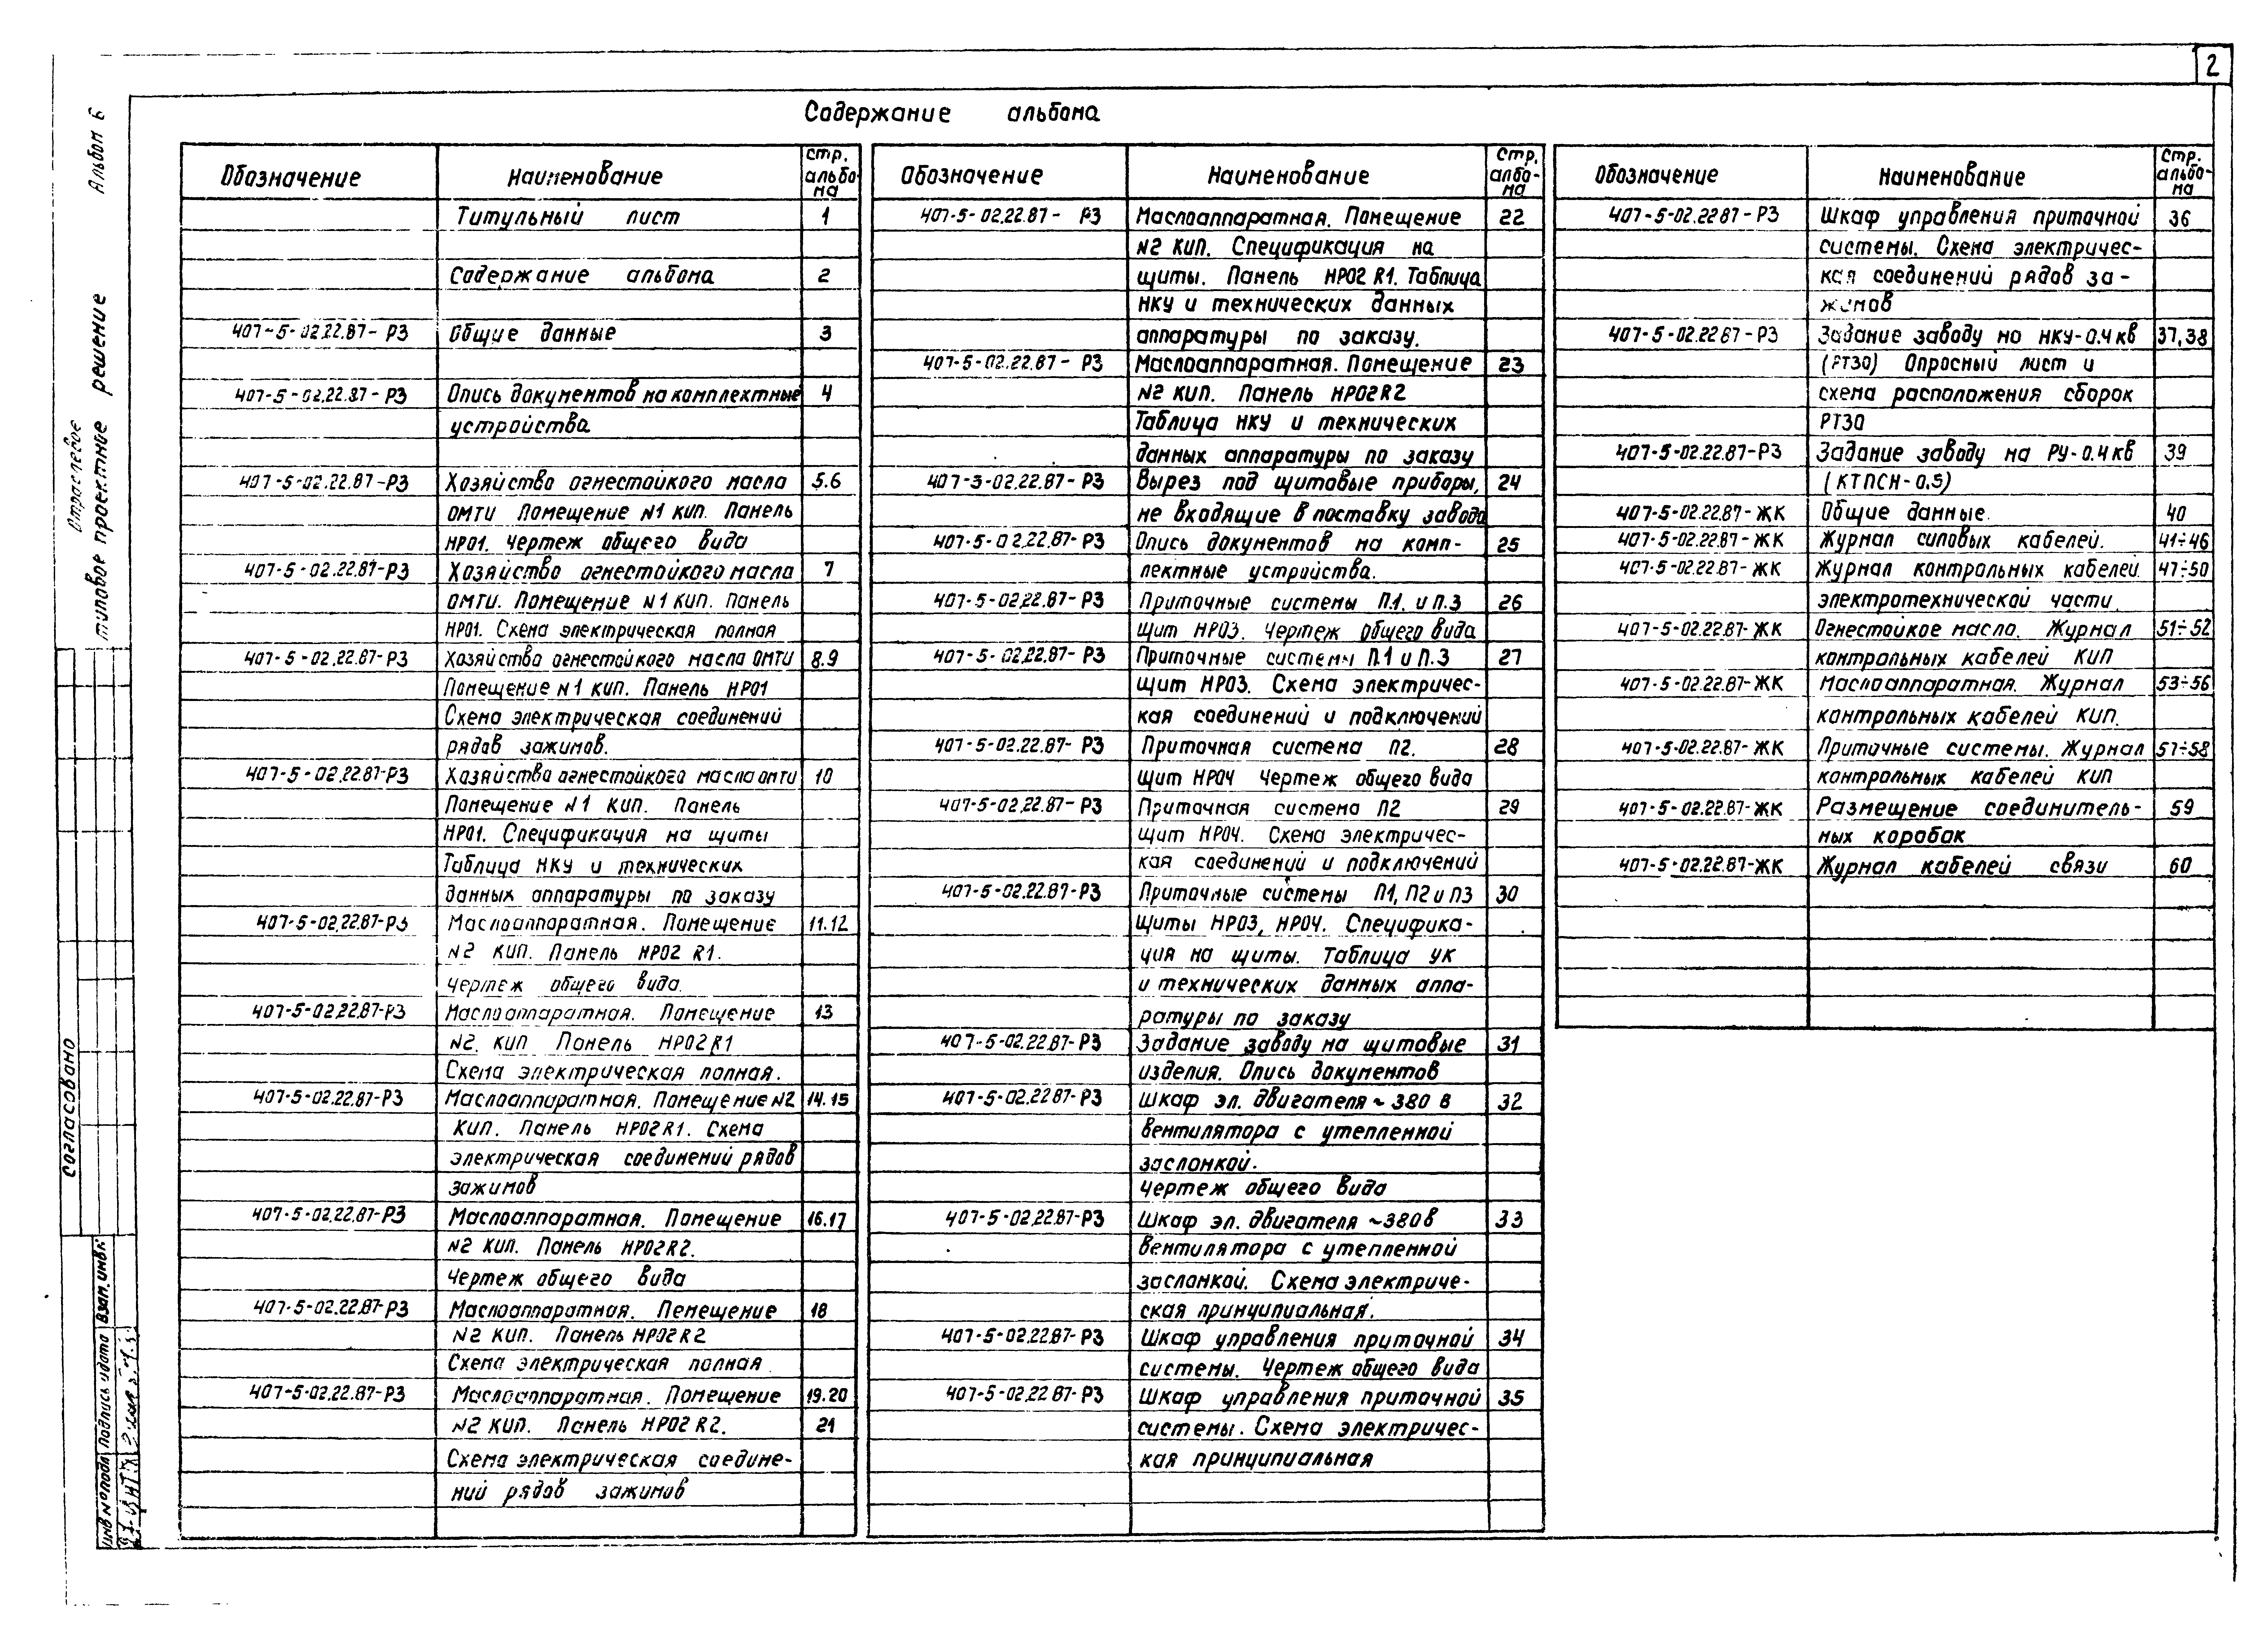 2
Содержание альбома
Альбом 6
Отраслевое
типовое проектние решение
Согласовано
Взам. инв№
Подпись и дата
Инв № подл
Обозначение Наименование Стр. альбо-ма
Титульный лист 1
Содержание альбома 2
407-5-02.22.87-РЗ Общие данные 3
407-5-02.22.87-РЗ Опись документов на комплектные 4
устройства
407-5-02.22.87-РЗ Хозяйство огнестойкого масла 5.6
ОМТИ Помещение N1 КИП. Панель
НР01. Чертеж общего вида
407-5-02.22.87-РЗ Хозяйство огнестойкого масла 7
ОМТИ. Помещение N1 КИП. Панель
НР01. Схема электрическая полная
407-5-02.22.87-РЗ Хозяйство огнестойкого масла ОМТИ 8.9
Помещение N1 КИП. Панель НР01
Схема электрическая соединений
рядов зажимов.
407-5-02.22.87-РЗ Хозяйство огнестойкого масла ОМТИ 10
Помещение N1 КИП. Панель
НР01. Спецификация на щиты
Таблица НКУ и технических
данных аппаратуры по заказу
407-5-02.22.87-РЗ Маслоаппаратная. Помещение 11.12
N2 КИП. Панель НР02 R1.
Чертеж общего вида.
407-5-02.22.87-РЗ Маслоаппаратная. Помещение 13
N2. КИП Панель НР02 R1
Схема электрическая полная.
407-5-02.22.87-РЗ Маслоаппаратная. Помещение N2 14.15
КИП. Панель НР02R1. Схема
электрическая соединений рядов
зажимов
407-5-02.22.87-РЗ Маслоаппаратная. Помещение 16.17
N2 КИП. Панель НР02R2.
Чертеж общего вида
407-5-02.22.87-РЗ Маслоаппаратная. Пемещение 18
N2 КИП. Панель НР02R2
Схема электрическая полная.
407-5-02.22.87-РЗ Маслоаппаратная. Помещение 19.20
N2 КИП. Панель НР02 R2. 21
Схема электрическая соедине-
ний рядов зажимов
Обозначение Наименование Стр. албо-ма
407-5-02.22.87-РЗ Маслоаппаратная. Помещение 22
N2 КИП. Спецификация на
щиты. Панель НР02 R1. Таблица
НКУ и технических данных
аппаратуры по заказу.
407-5-02.22.87-РЗ Маслоаппаратная. Помещение 23
N2 КИП. Панель НР02R2
Таблица НКУ и технических
данных аппаратуры по заказу
407-3-02.22.87-РЗ Вырез под щитовые приборы, 24
не входящие в поставку завода
407-5-02.22.87-РЗ Опись документов на комп- 25
лектные устройства.
407-5-02.22.87-РЗ Приточные системы П.1. и П.3 26
Щит НР03. Чертеж общего вида
407-5-02.22.87-РЗ Приточные системы П.1 и П.3 27
Щит НР03. Схема электричес-
кая соединений и подключений
407-5-02.22.87-РЗ Приточная система П2. 28
Щит НР04 Чертеж общего вида
407-5-02.22.87-РЗ Приточная система П2 29
Щит НР04. Схема электричес-
кая соединений и подключений
407-5-02.22.87-РЗ Приточные системы П1, П2 и П3 30
Щиты НР03, НР04. Специфика-
ция на щиты. Таблица УК
и технических данных аппа-
ратуры по заказу
407-5-02.22.87-РЗ Задание заводу на щитовые 31
изделия. Опись документов
407-5-02.22.87-РЗ Шкаф эл. двигателя ~ 380 в 32
вентилятора с утепленной
заслонкой.
Чертеж общего вида
407-5-02.22.87-РЗ Шкаф эл. двигателя ~380в 33
вентилятора с утепленной
заслонкой. Схема электриче-
ская принципиальная.
407-5-02.22.87-РЗ Шкаф управления приточной 34
системы. Чертеж общего вида
407-5-02.22.87-РЗ Шкаф управления приточной 35
системы. Схема электричес-
кая принципиальная
Обозначение Наименование Стр. альбо-ма
407-5-02.22.87-РЗ Шкаф управления приточной 36
системы. Схема электричес-
кая соединений рядов за-
жимов
407-5-02.22.87-РЗ Задание заводу на НКУ-0.4 кв 37,38
(РТ30) Опросный лист и
схема расположения сборок
РТ30
407-5-02.22.87-РЗ Задание заводу на РУ-0.4 кв 39
(КТПСН-0.5)
407-5-02.22.87-ЖК Общие данные. 40
407-5-02.22.87-ЖК Журнал силовых кабелей. 41÷46
407-5-02.22.87-ЖК Журнал контрольных кабелей 47÷50
электротехнической части.
407-5-02.22.87-ЖК Огнестойкое масло. Журнал 51÷52
контрольных кабелей КИП
407-5-02.22.87-ЖК Маслоаппаратная. Журнал 53÷56
контрольных кабелей КИП.
407-5-02.22.87-ЖК Приточные системы. Журнал 57÷58
контрольных кабелей КИП
407-5-02.22.87-ЖК Размещение соединитель- 59
ных коробок
407-5-02.22.87-ЖК Журнал кабелей связи 60